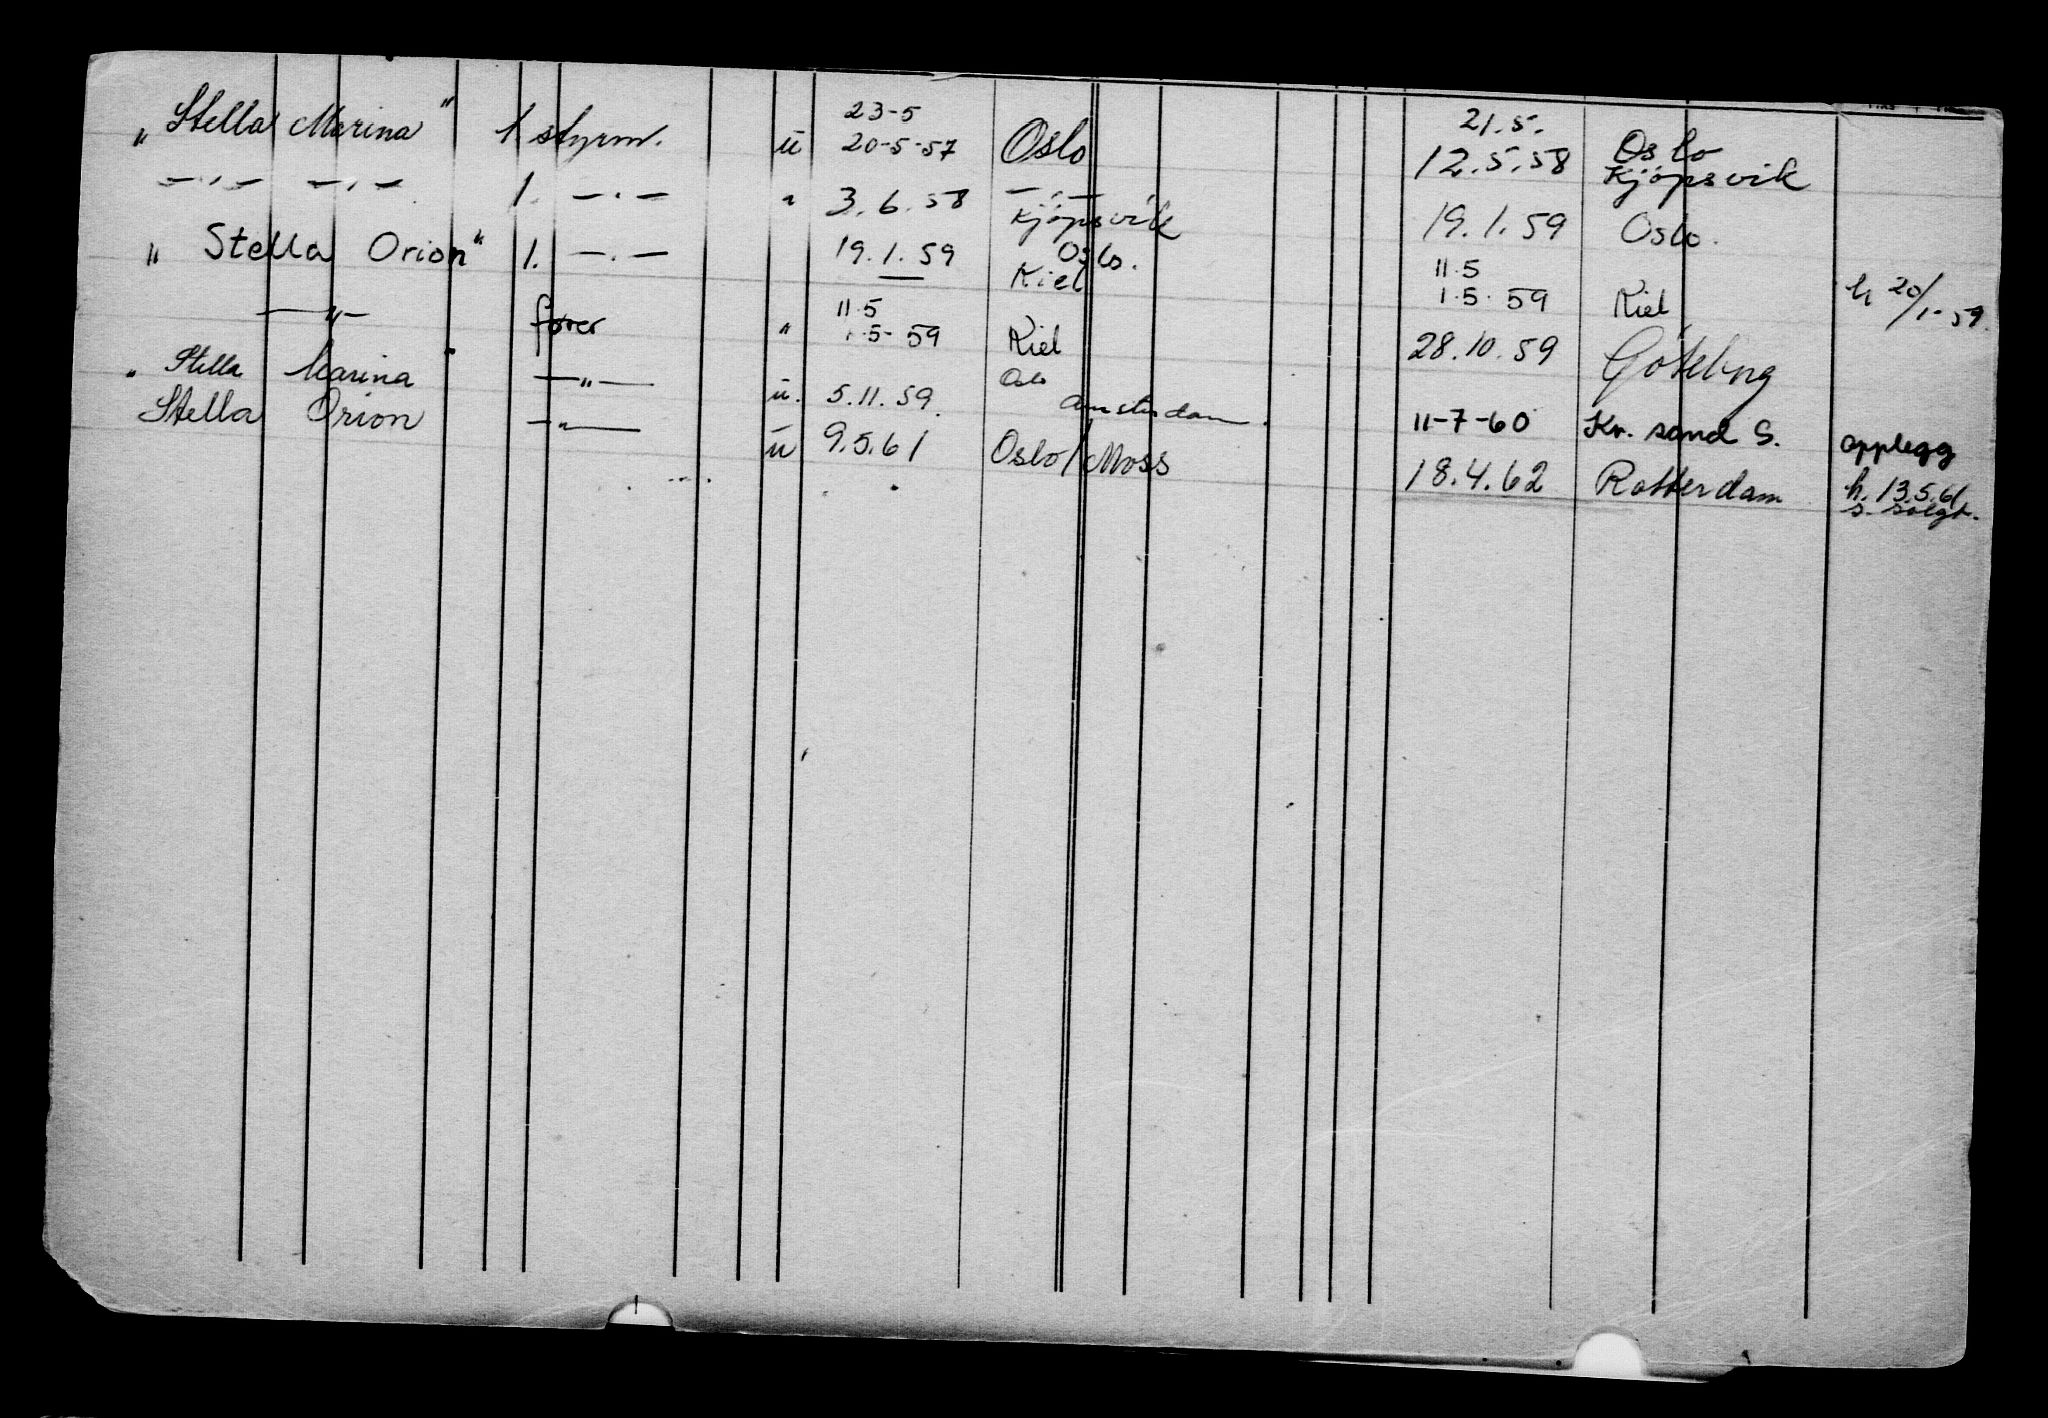 23-5 21.5.
„ Stella Marina" 1 styrm. ü 20-5-57 Oslo 12.5.58 Oslo Kjøpsvik
—"— —"— 1. —.— " 3.6.58 —"— Kjøpsvik 19.1.59 Oslo.
" Stella Orion" 1. —.— 19.1.59 Oslo. Kiel 11.5 1.5.59 Kiel h 20/1-59.
—"— fører " 11.5 1.5-59 Kiel 28.10.59 Göteborg
" Stella Marina —"— ü. 5.11.59. Oslo Amsterdam. 11-7-60 Kr. sand S. opplegg
Stella Orion —"— ü 9.5.61 Oslo/Moss 18.4.62 Rotterdam h. 13.5.61
s. solgt.